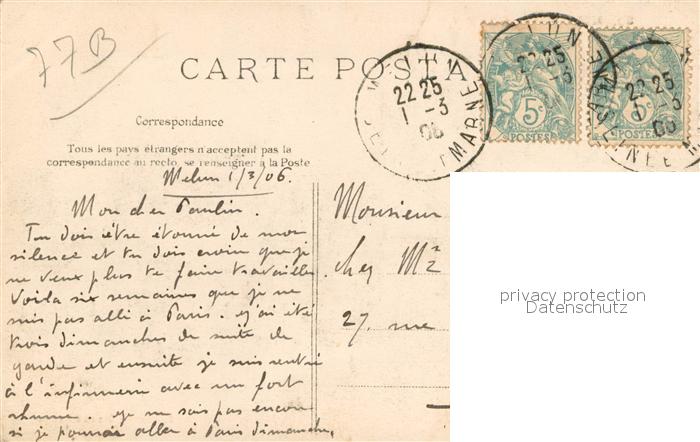 77B
CARTE POSTA
MELUN
22 25
1 -3
06
SEINE ET MARNE
5c
POSTES
MELUN
22 25
1 -3
06
5c
POSTES
Correspondance
Tous les pays étrangers n'acceptent pas la
correspondance au recto, se renseigner à la Poste
Melun 1/3/06.
Mon cher Paulin.
Tu dois être étonné de mon
silence et tu dois croire que je
ne veux plus te faire travailler
Voila six semaines que je ne
suis pas allé à Paris. J'ai été
trois dimanches de suite de
garde et ensuite je suis rentré
à l'infirmerie avec un fort
rhume. Je ne sais pas encore
si je pourrai aller à Paris dimanche,
Monsieur
chez Mr
27, rue
privacy protection
Datenschutz